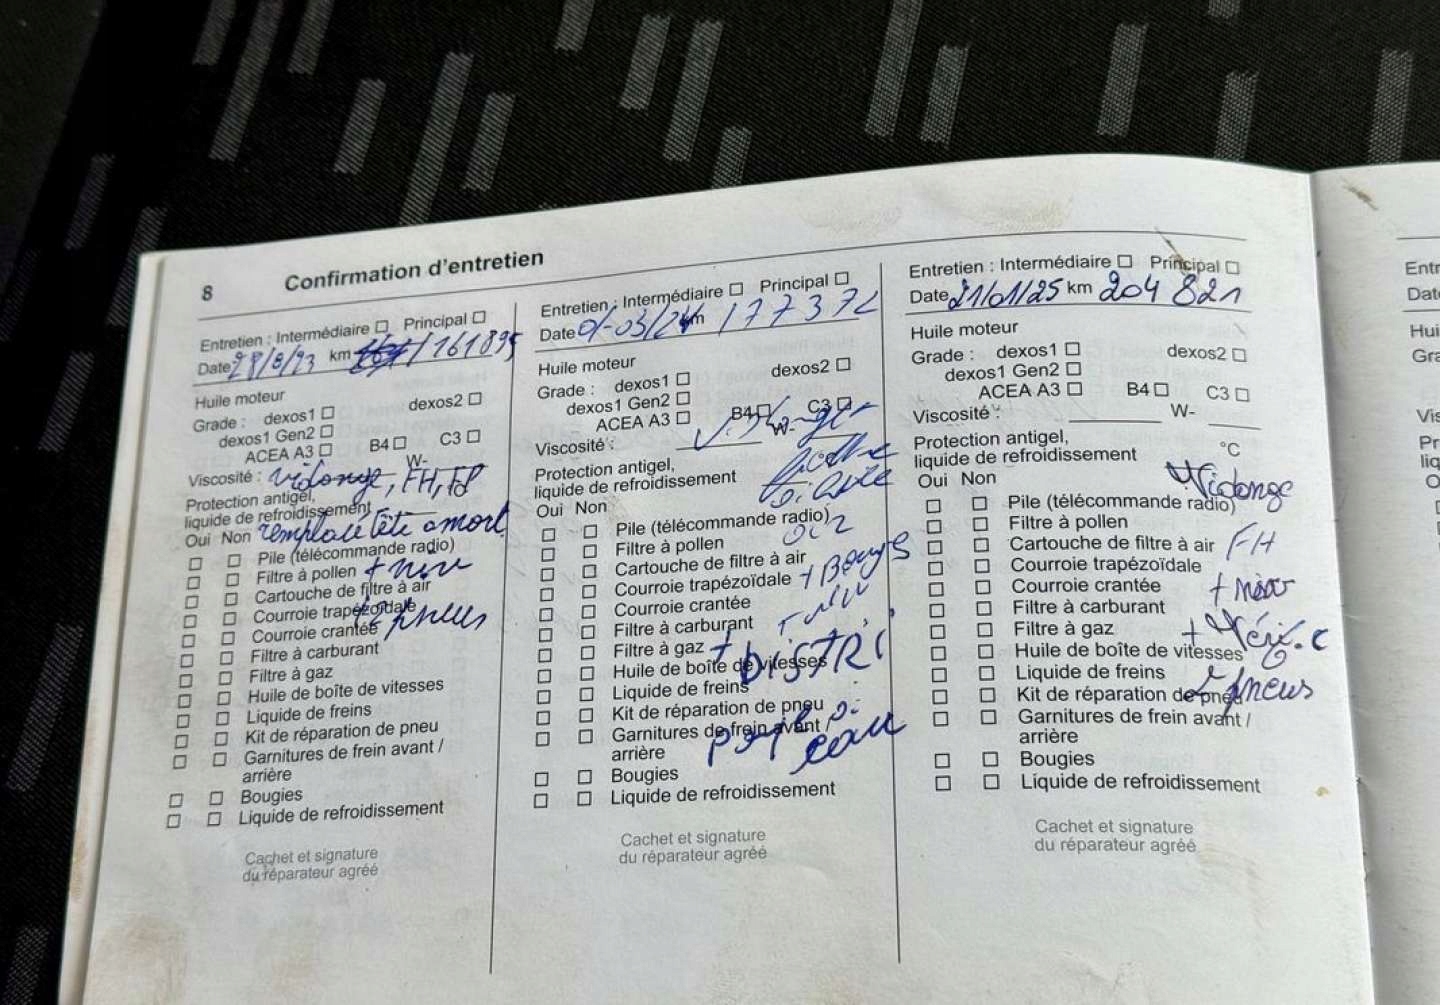 8 Confirmation d'entretien
Entretien : Intermédiaire Principal
Date 28/8/23 km 161895
Huile moteur
Grade : dexos1 dexos2
dexos1 Gen2
ACEA A3 B4 C3
Viscosité : W-
vidange, FH, FP
Protection antigel,
liquide de refroidissement
remplacé tête amort
Oui Non
Pile (télécommande radio)
Filtre à pollen
Cartouche de filtre à air
Courroie trapézoïdale
pneus
Courroie crantée
Filtre à carburant
Filtre à gaz
Huile de boîte de vitesses
Liquide de freins
Kit de réparation de pneu
Garnitures de frein avant /
arrière
Bougies
Liquide de refroidissement
Cachet et signature
du réparateur agréé
Entretien : Intermédiaire Principal
Date 01-03/24 km 177372
Huile moteur
Grade : dexos1 dexos2
dexos1 Gen2
ACEA A3 B4 C3
Viscosité : W-
Protection antigel,
liquide de refroidissement
Oui Non
Pile (télécommande radio)
Filtre à pollen
Cartouche de filtre à air
Courroie trapézoïdale
+ Bougies
Courroie crantée
Filtre à carburant
Filtre à gaz
+ DISTRI
Huile de boîte de vitesses
Liquide de freins
Kit de réparation de pneu
Garnitures de frein avant /
arrière
eau
Bougies
Liquide de refroidissement
Cachet et signature
du réparateur agréé
Entretien : Intermédiaire Principal
Date 21/01/25 km 204 821
Huile moteur
Grade : dexos1 dexos2
dexos1 Gen2
ACEA A3 B4 C3
Viscosité : W-
Protection antigel,
liquide de refroidissement °C
Vidange
Oui Non
Pile (télécommande radio)
Filtre à pollen
Cartouche de filtre à air FH
Courroie trapézoïdale
Courroie crantée
Filtre à carburant
Filtre à gaz
Huile de boîte de vitesses
Liquide de freins
2 pneus
Kit de réparation de pneu
Garnitures de frein avant /
arrière
Bougies
Liquide de refroidissement
Cachet et signature
du réparateur agréé